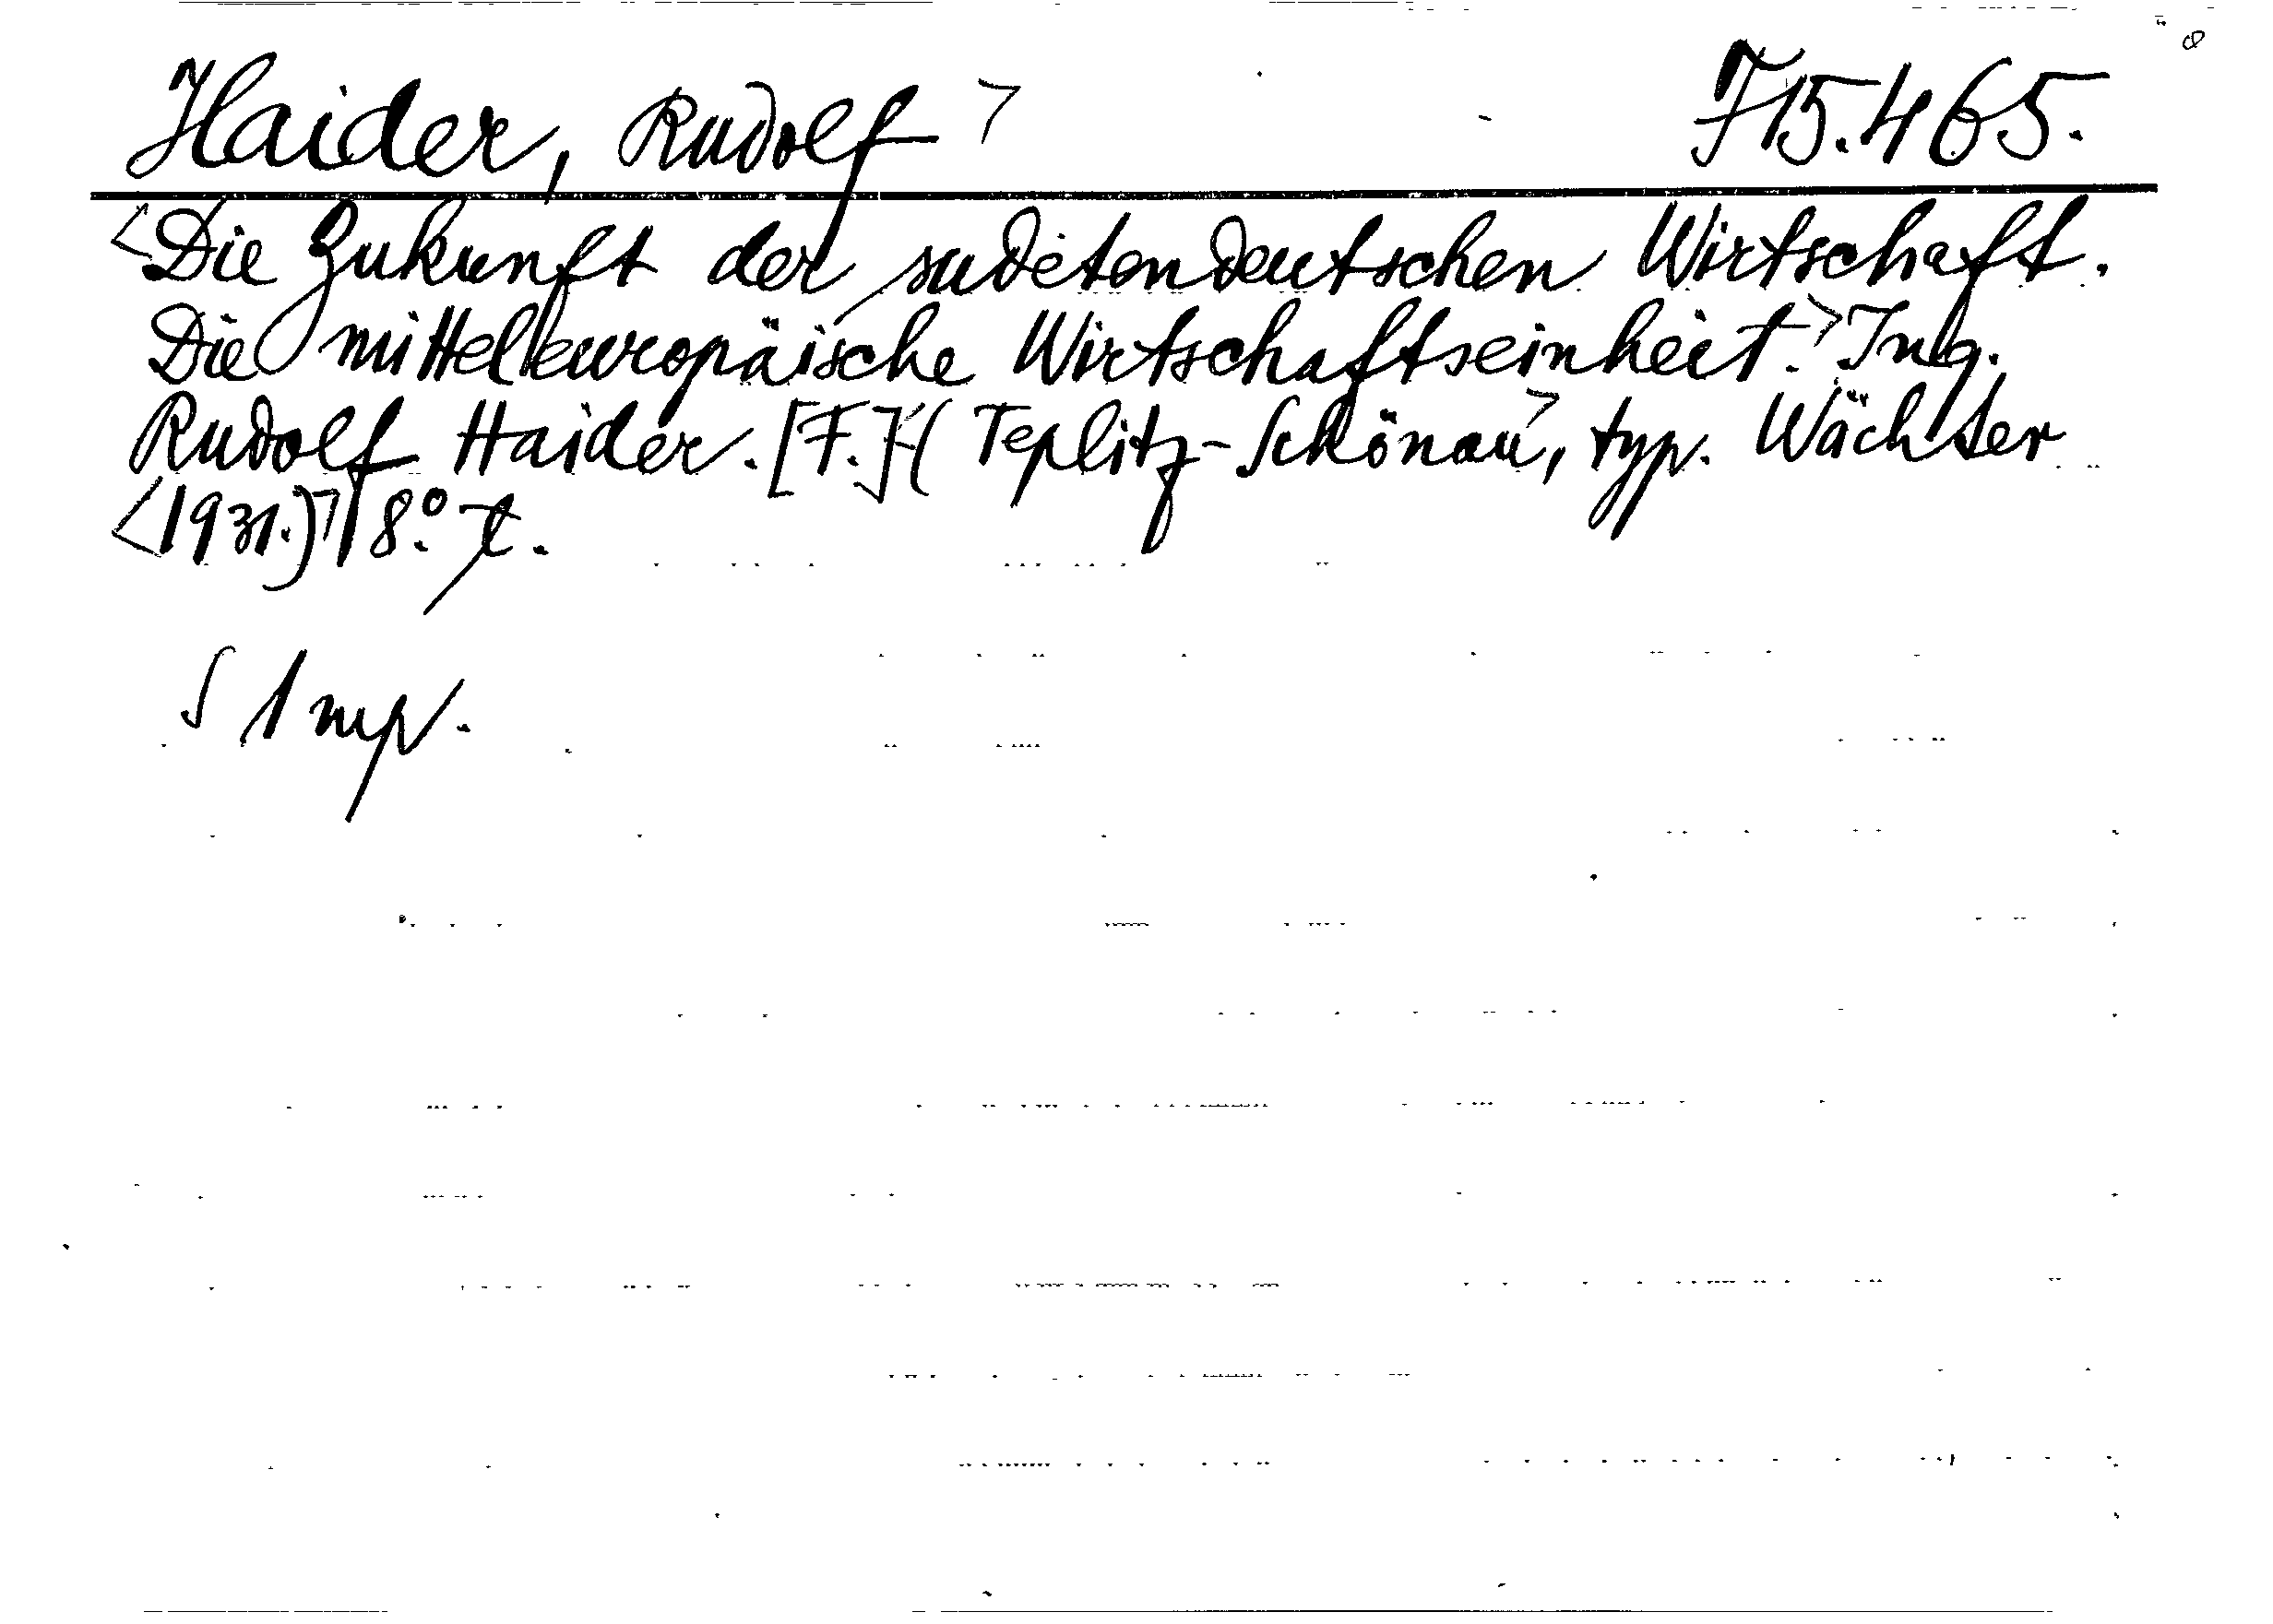 Haider, Rudolf 715.465.
Die Zukunft der sudetendeutschen Wirtschaft.
Die mitteleuropäische Wirtschaftseinheit. Ing.
Rudolf Haider. [F.] (Teplitz-Schönau, typ. Wächter
1931.) 8°. t.
1 mp.